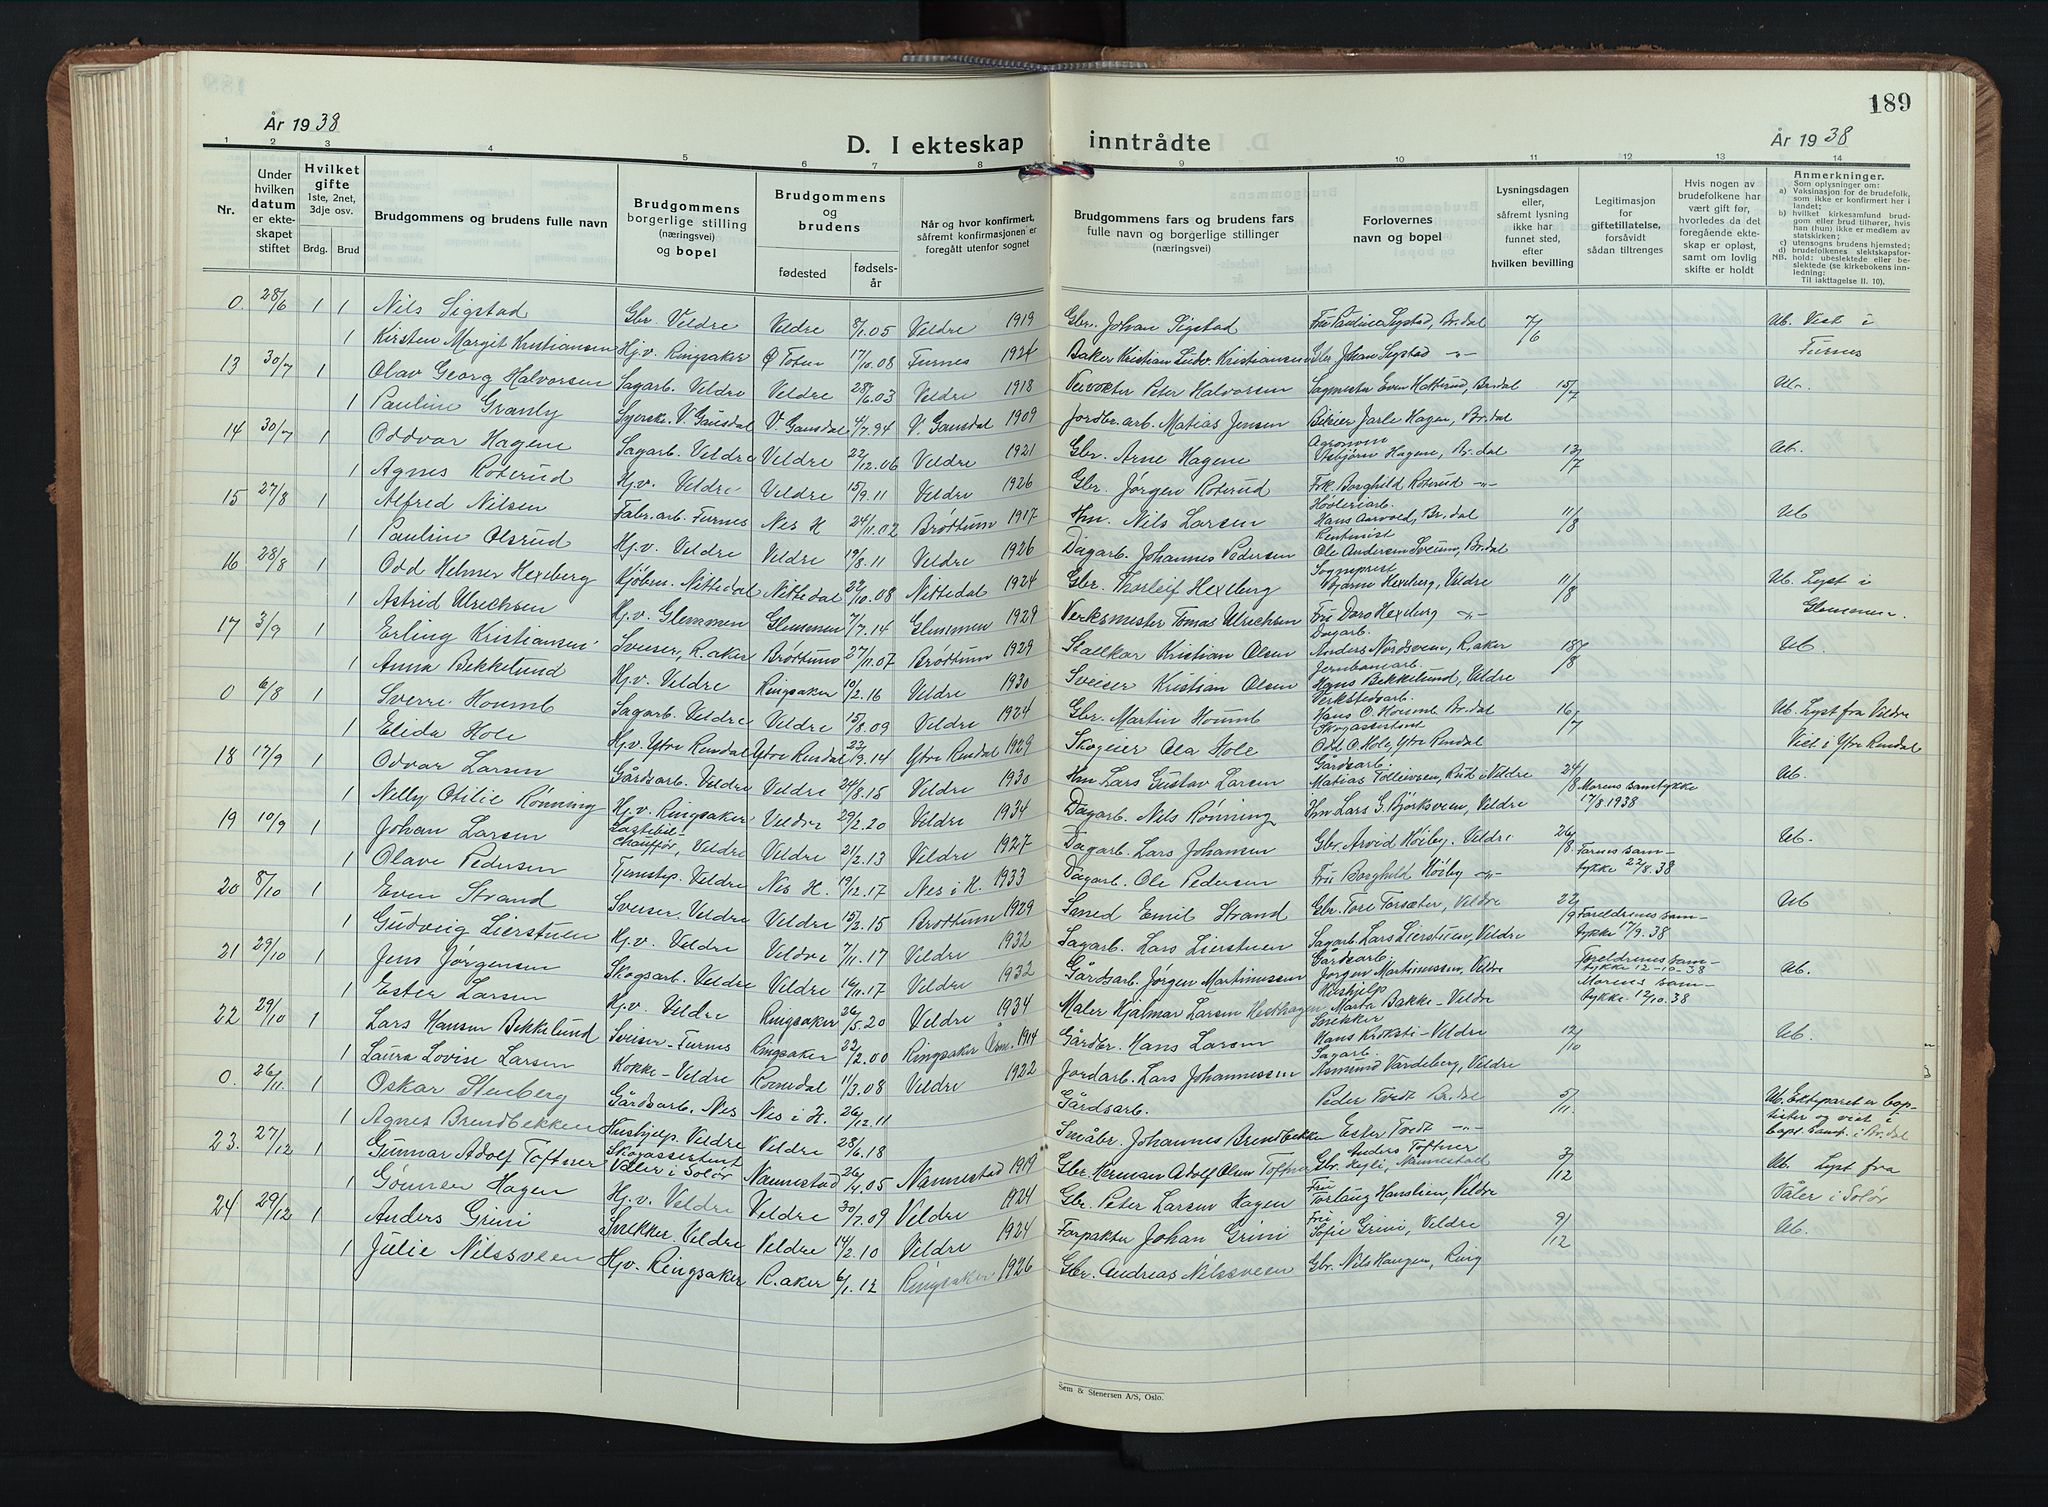 189
År 1938
D. I ekteskap inntrådte
År 1938
1 2 3 4 5 6 7 8 9 10 11 12 13 14
Nr.
Under hvilken datum er ekteskapet stiftet
Hvilket gifte 1ste, 2net, 3dje osv.
Brdg. Brud
Brudgommens og brudens fulle navn
Brudgommens borgerlige stilling (næringsvei) og bopel
Brudgommens og brudens
fødested
fødselsår
Når og hvor konfirmert, såfremt konfirmasjonen er foregått utenfor sognet
Brudgommens fars og brudens fars fulle navn og borgerlige stillinger (næringsvei)
Forlovernes navn og bopel
Lysningsdagen eller, såfremt lysning ikke har funnet sted, efter hvilken bevilling
Legitimasjon for giftetillatelse, forsåvidt sådan tiltrenges
Hvis nogen av brudefolkene har vært gift før, hvorledes da det foregående ekteskap er opløst, samt om lovlig skifte er holdt
Anmerkninger.
Som oplysninger om:
a) Vaksinasjon for de brudefolk, som ikke er konfirmert her i landet;
b) hvilket kirkesamfund brudgom eller brud tilhører, hvis han (hun) ikke er medlem av statskirken;
c) utensogns brudens hjemsted;
d) brudefolkenes slektskapsforhold: ubeslektede eller beslektede (se kirkebokens innledning:
NB.
Til iakttagelse II. 10).
0. 28/6 1 1 Nils Sigstad Gbr. Veldre Veldre 8/1.05 Veldre 1919 Gbr. Johan Sigstad Fru Pauline Sigstad, Br.dal 7/6 Ub. Viet i Furnes
1 Kirsten Margit Kristiansen Hj.v. Ringsaker Ø Toten 17/10.08 Furnes 1924 Baker Kristian Ludv. Kristiansen Gbr. Johan Sigstad -"-
13 30/7 1 Olav Georg Halvorsen Sagarb. Veldre Veldre 28/6.03 Veldre 1918 Veivokter Peter Halvorsen Sagmester Even Hatterud, Br.dal 15/7 Ub.
1 Pauline Granly Syerske. V. Gausdal V Gausdal 4/7.94 V. Gausdal 1909 Jordbr. arb. Matias Jensen Jarle Hagen, Br.dal
14 30/7 1 Oddvar Hagene Sagarb. Veldre Veldre 22/12.06 Veldre 1921 Gbr. Arne Hagene Agronom Asbjørn Hagene, Br.dal 13/7 Ub.
1 Agnes Roterud Hj.v. Veldre Veldre 15/9.11 Veldre 1926 Gbr. Jørgen Roterud Frk Borghild Roterud -"-
15 27/8 1 Alfred Nilsen Fabr.arb. Furnes Nes H 24/11.02 Brøttum 1917 Hm. Nils Larsen Høvleriarb. Hans Aarvold, Br.dal 11/8 Ub
1 Pauline Olsrud Hj.v. Veldre Veldre 19/8.11 Veldre 1926 Dagarb. Johannes Pedersen Rentenist Ole Andersen Sveum, Br.dal
16 28/8 1 Odd Helmer Hexeberg Kjøbm. Nittedal Nittedal 22/10.08 Nittedal 1924 Gbr. Thorleif Hexeberg Sogneprest Bjarne Hexeberg, Veldre 11/8 Ub. Lyst i Glemmen
1 Astrid Ulrichsen Hj.v. Glemmen Glemmen 7/7.14 Glemmen 1929 Verksmester Tomas Ulrichsen Fru Dora Hexeberg -"-
17 3/9 1 Erling Kristiansen Sveiser, R.aker Brøttum 27/11.07 Brøttum 1929 Stallkar Kristian Olsen Dagarb. Anders Nordsveen, R.aker 18/8 Ub.
1 Anna Bekkelund Hj.v. Veldre Ringsaker 10/2.16 Veldre 1930 Sveiser Kristian Olsen Jernbanearb. Hans Bekkelund, Veldre
0 6/8 1 Sverre Houmb Sagarb. Veldre Veldre 15/8.09 Veldre 1924 Gbr. Martin Houmb Verkstedsarb. Hans O. Houmb Br.dal 16/7 Ub. Lyst fra Veldre
1 Elida Hole Hj.v. Ytre Rendal Ytre Rendal 23/9.14 Ytre Rendal 1929 Skogeier Ola Hole Skogassistent Odd O. Hole, Ytre Rendal Viet i Ytre Rendal
18 17/9 1 Odvar Larsen Gårdsarb. Veldre Veldre 24/8.15 Veldre 1930 Hm Lars Gustav Larsen Gårdsarb. Matias Tolleivsen, Rud Veldre 24/8 Morens samtykke 17/8 1938 Ub.
1 Nelly Otilie Rønning Hj.v. Ringsaker Veldre 29/2.20 Veldre 1934 Dagarb. Nils Rønning Hm Lars G. Bjørksveen, Veldre
19 10/9 1 Johan Larsen Lastebilchauffør, Veldre Veldre 21/2.13 Veldre 1927 Dagarb. Lars Johansen Gbr. Arvid Høiby. Veldre 26/8. Farens samtykke 22/8.38 Ub.
1 Olave Pedersen Tjenstep. Veldre Nes H. 19/12.17 Nes i H. 1933 Dagarb. Ole Pedersen Fru Borghild Høiby -"-
20 8/10 1 Even Strand Sveiser. Veldre Veldre 15/2.15 Brøttum 1929 Smed Emil Strand Gbr. Tore Torsæter, Veldre 22/9 Foreldrenes samtykke 17/9.38 Ub
1 Gudveig Lierstuen Hj.v. Veldre Veldre 7/11.17 Veldre 1932 Sagarb. Lars Lierstuen Sagarb. Lars Lierstuen, Veldre
21 29/10 1 Jens Jørgensen Skogsarb. Veldre Veldre 16/11.17 Veldre 1932 Gårdsarb. Jørgen Martinussen Gårdsarb. Jørgen Martinussen, Veldre Foreldrenes samtykke 12-10-38 Ub.
1 Ester Larsen Hj.v. Veldre Ringsaker 26/5.20 Veldre 1934 Maler Hjalmar Larsen Hesthagen Hushjelp Marta Bakke - Veldre Morens samtykke 12/10.38
22 29/10 1 Lars Hansen Bekkelund Sveiser - Furnes Ringsaker 22/2.00 Ringsaker 1914 Gårdbr. Hans Larsen Snekker Hans Kroksti - Veldre 12/10 Ub.
1 Laura Lovise Larsen Kokke - Veldre Romedal 11/3.08 Veldre 1922 Jordarb. Lars Johannessen Sagarb. Asmund Vardeberg, Veldre
0. 26/11 1 Oskar Stenberg Gårdsarb. Nes Nes i H. 26/12.11 Gårdsarb. Peder Tvedt Br.dal 5/11. Ub. Ekteparet er baptister og viet i bapt. samf. i Br.dal
1 Agnes Brendbekken Hushjelp. Veldre Veldre 28/6.18 Småbr. Johannes Brendbekken Ester Tvedt -"-
23. 27/12 1 Gunnar Adolf Toftner Skogassistent Våler i Solør Nannestad 26/4.05 Nannestad 1919 Gbr. Herman Adolf Olsen Toftner Anders Toftner Gbr. Nannestad 3/12 Ub. Lyst fra Våler i Solør
1 Gønner Hagen Hj.v. Veldre Veldre 30/7.09 Veldre 1924 Gbr. Peter Larsen Hagen Fru Torlaug Hanslien, Veldre
24 29/12 1 Anders Grini Snekker. Veldre Veldre 14/2.10 Veldre 1924 Forpakter Johan Grini Fru Sofie Grini, Veldre 9/12 Ub.
1 Julie Nilssveen Hj.v. Ringsaker R.aker 6/1.12 Ringsaker 1926 Gbr. Andreas Nilssveen Gbr. Nils Haugen, Ring
Sem & Stenersen A/S, Oslo.